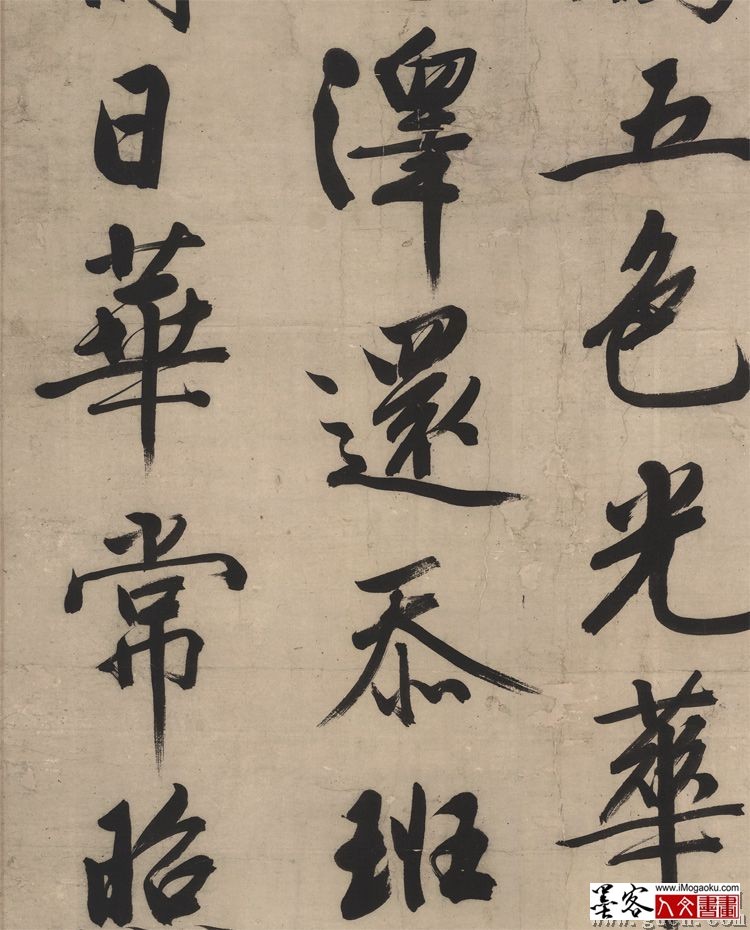 五色光華
澤還忝班
日華常昭
墨客
www.iMogaoku.com
人文書畫